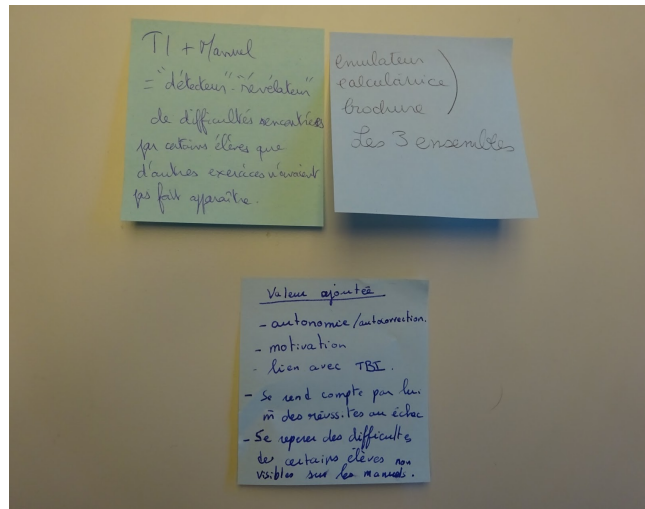 TI + Manuel
= "détecteur" - "révélateur"
de difficultés rencontrées
par certains élèves que
d'autres exercices n'avaient
pas fait apparaître.
emulateur
calculatrice
brochure
Les 3 ensembles
Valeur ajoutée
- autonomie/autocorrection.
- motivation
- lien avec TBI.
- Se rend compte par lui
m̂ des réussites ou échec
- Se reperer des difficultés
de certains élèves non
visibles sur les manuels.